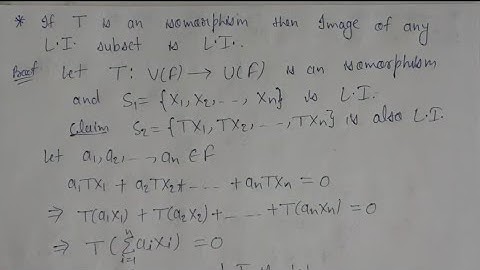 * If T is an isomorphism then Image of any
L.I. subset is L.I..
Proof Let T: V(F) → U(F) is an isomorphism
and S₁ = {x₁, x₂, --, xₙ} is L.I.
Claim S₂ = {Tx₁, Tx₂, --, Txₙ} is also L.I.
Let a₁, a₂, --, aₙ ∈ F
a₁Tx₁ + a₂Tx₂ + ---- + aₙTxₙ = 0
⇒ T(a₁x₁) + T(a₂x₂) + ---- + T(aₙxₙ) = 0
⇒ T(∑ⁿᵢ₌₁ aᵢxᵢ) = 0